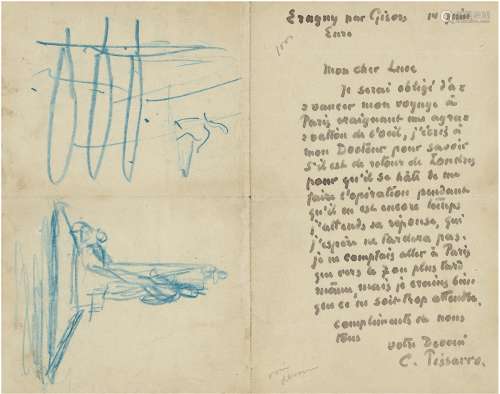 Eragny par Gisors 14 Juin
Eure
Mon cher Luce
Je serai obligé d'a-
vancer mon voyage à
Paris craignant une aggra-
vation de l'œil, j'écris à
mon Docteur pour savoir
s'il est de retour de Londres
pour qu'il se hâte de me
faire l'opération pendant
qu'il en est encore temps
j'attends sa réponse, qui
j'espère ne tardera pas.
je ne comptais aller à Paris
que vers le 20 ou plus tard
même, mais je crains bien
que ce ne soit trop attendre.
compliments de nous
tous
votre Dévoué
C. Pissarro.